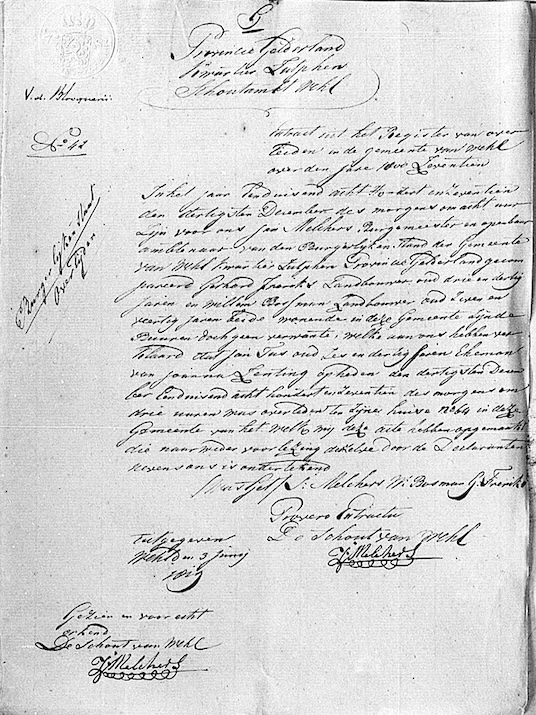 6
Provincie Gelderland
Kwartier Zutphen
Schoutambt Wehl
V. d.
No 42
Extract uit het Register van over
leiden in de gemeente van Wehl
over den Jare 1800 Zeventien
Burgerlijken Staat
Overlijden
In het jaar Eenduisend acht Hondert en Zeventien
den dertigsten December des morgens om acht uur
Zijn voor ons Jan Melchers Burgemeester en openbaar
amblenaar van den Burgerlyken Stand den Gemeente
van Wehl Kwartier Zutphen Provincie Gelderland gecom
pareerd Gerhard Frericks Landbouwer oud drie en dertig
jaren en Willem Bosman Landbouwer oud Zeven en
veertig jaren beide wonende in deze Gemeente zijnde
Buuren doch geen verwante, welke aan ons hebben ver
klaard dat Jan Tus oud Zes en dertig jaren Eheman
van Joanna Zerling op heden den dertigsten Decem
ber Eenduisend acht hondert en Zeventien des morgens om
drie uuren was overleden in Zijnen huise No 64 in deze
Gemeente van het welk wij deze acte hebben opgemaakt
die naar weder voorlezing dezelve door de Declaranten
nevens ons is onderteekend
Was get J: Melchers W: Bosman G. Frericks
Pro vero Extractu
De Schout van Wehl
J: Melchers
uitgegeven
Wehl den 3 Junij
1819
Gezien en voor echt
erkend
De Schout van Wehl
J: Melchers